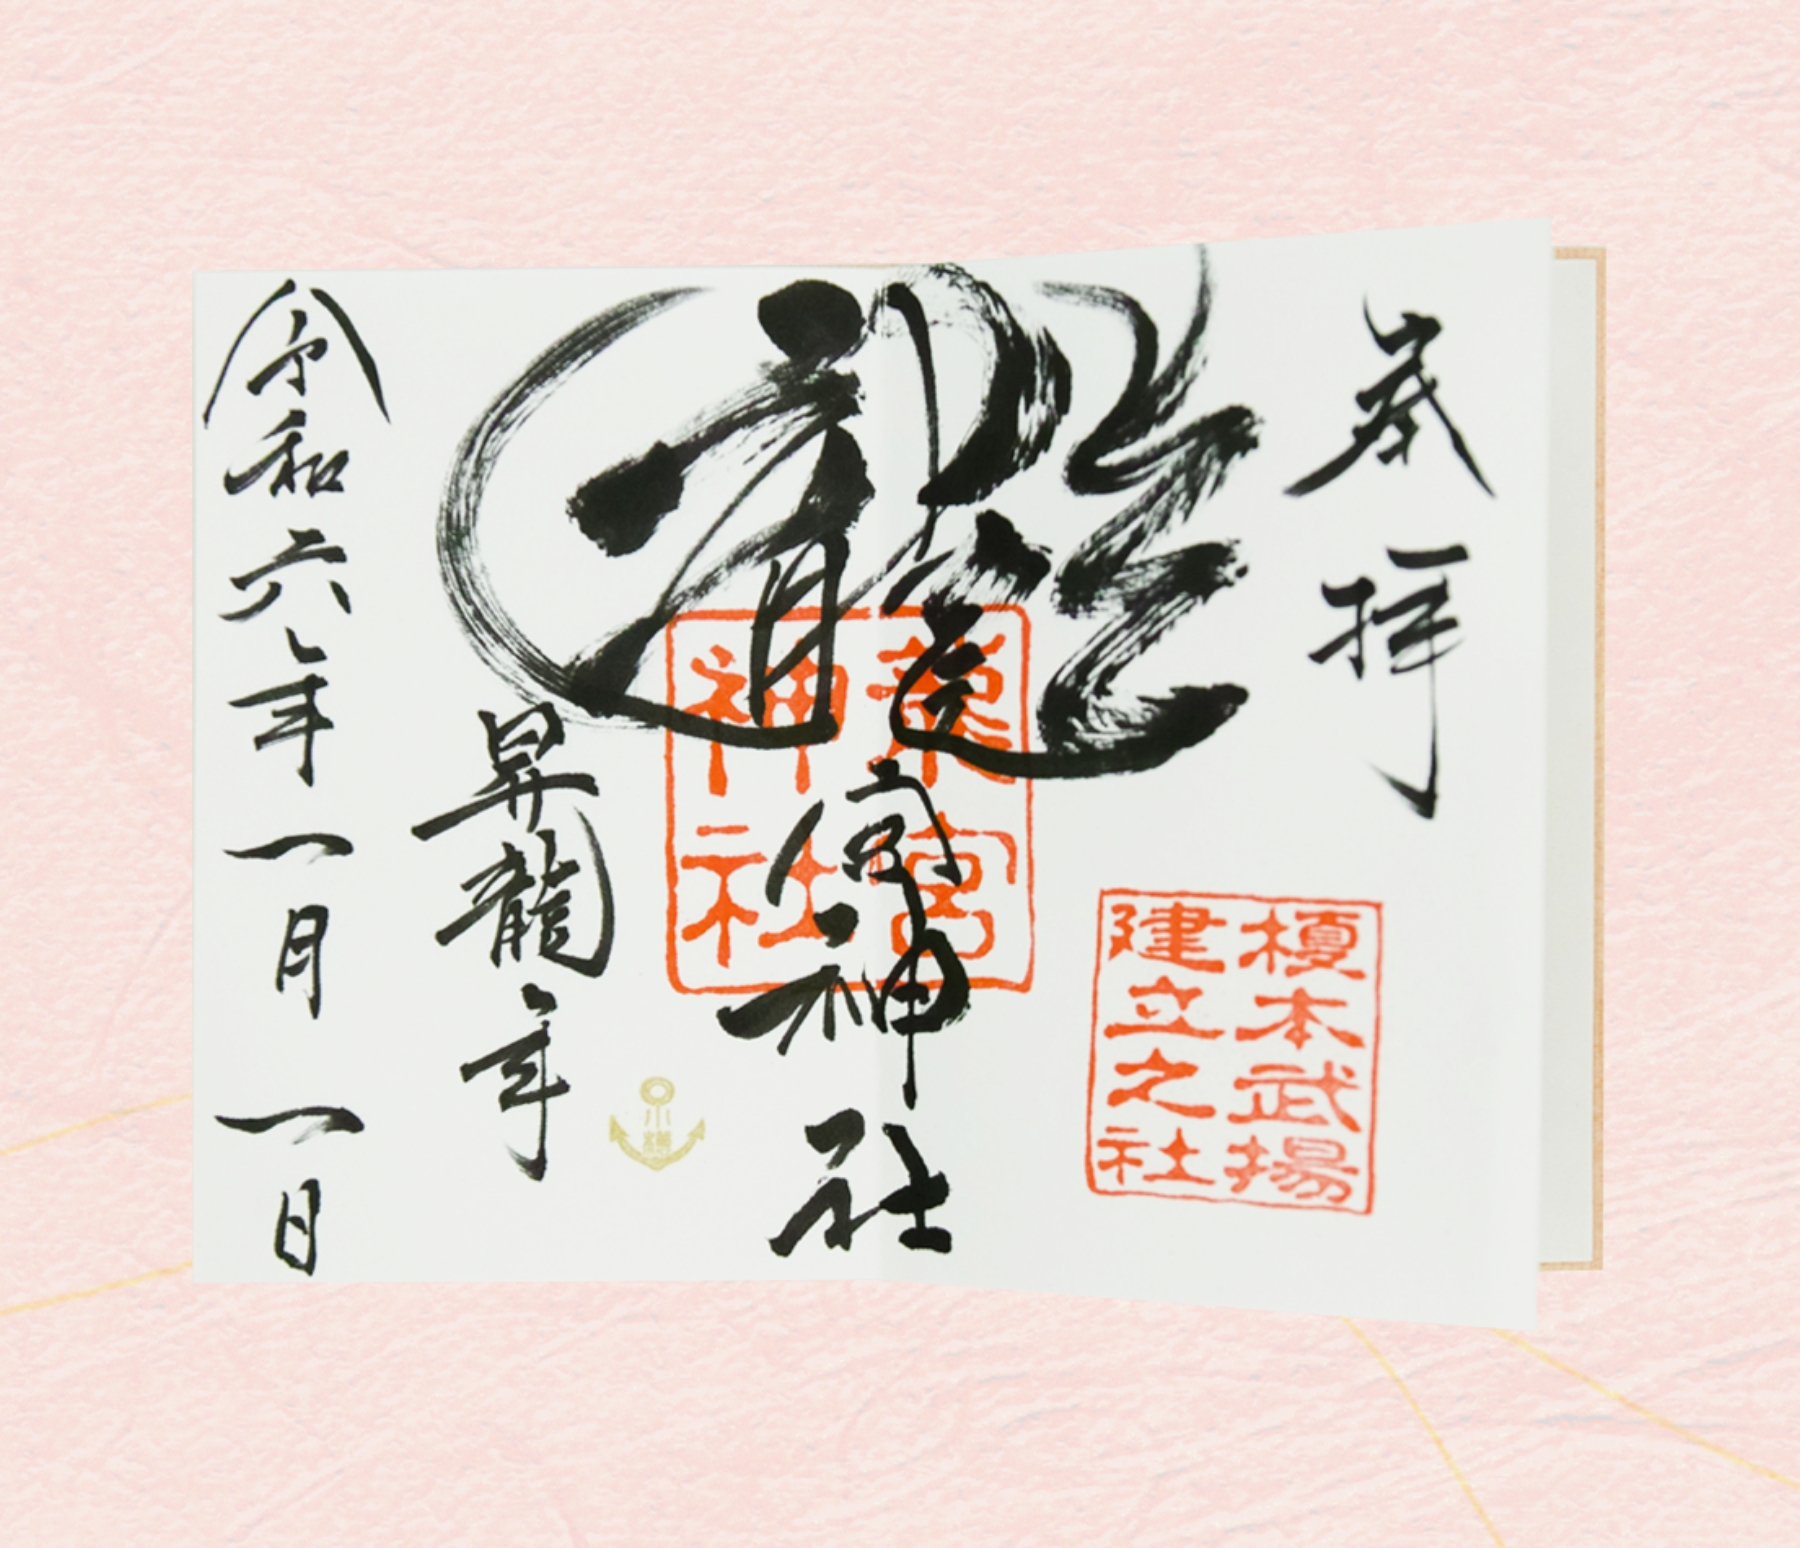 奉拝
榎本武揚
建立之社
龍宮神社
龍宮
神社
昇龍年
小樽
令和六年一月一日